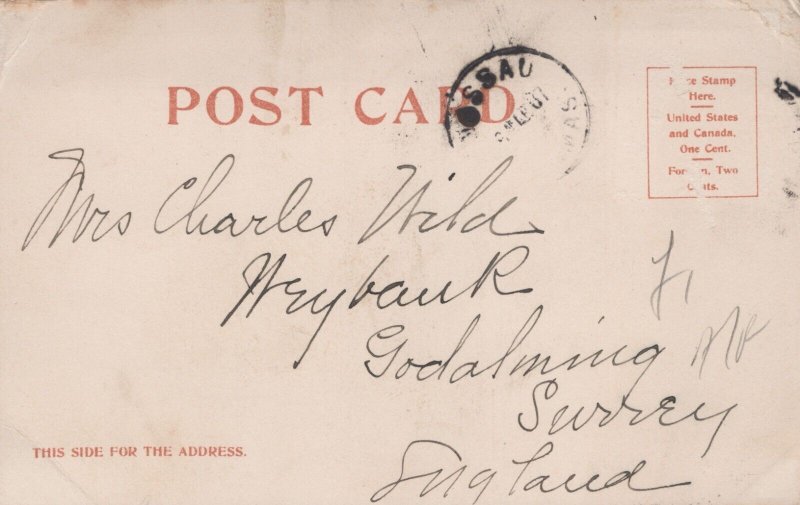 POST CARD
NASSAU
Stamp
Here.
United States
and Canada,
One Cent.
Two
Mrs Charles Wild
Weybank
Godalming
Surrey
England
THIS SIDE FOR THE ADDRESS.